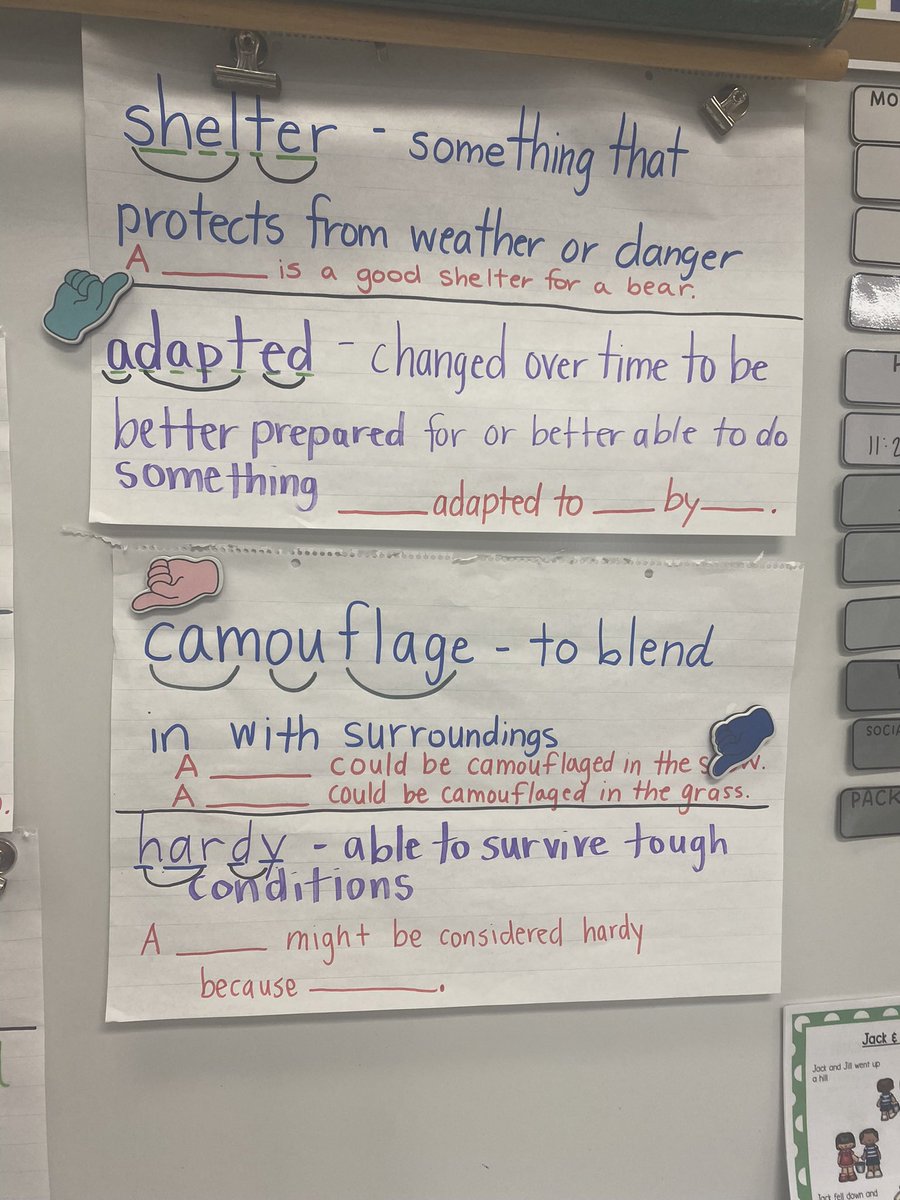 shelter - something that
protects from weather or danger
A ______ is a good shelter for a bear.
adapted - changed over time to be
better prepared for or better able to do
something
______ adapted to ____ by ____.
camouflage - to blend
in with surroundings
A ______ could be camouflaged in the
A ______ could be camouflaged in the grass.
hardy - able to survive tough
conditions
A ______ might be considered hardy
because ________.
MO
11:2
SOCIA
PACK
Jack &
Jack and Jill went up
a hill
Jack fell down and